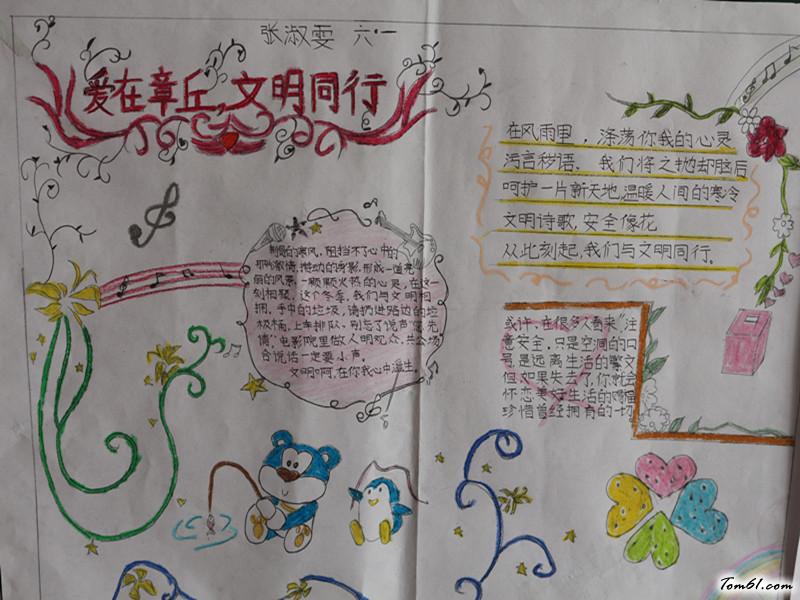 张淑雯 六·一
爱在章丘，文明同行
在风雨里，涤荡你我的心灵
污言秽语、我们将之抛却脑后
呵护一片新天地，温暖人间的寒冷
文明诗歌，安全像花
从此刻起，我们与文明同行。
的寒风，阻挡不了心中的
那份激情，攒动的身影，形成一道亮
丽的风景，一颗颗火热的心灵，在这一
刻相聚，这个冬季，我们与文明相
拥，手中的垃圾，请扔进路边的垃
圾桶，上车排队，别忘了说声"您先
请"，电影院里做人明观众，共公场
合说话一定要小声。
文明啊，在你我心中滋生。
或许，在很多人看来"注
意安全，只是空洞的口
号，是远离生活的繁文
但如果失去了，你就会
怀恋美好生活的幸福
珍惜曾经拥有的一切
Tom61.com